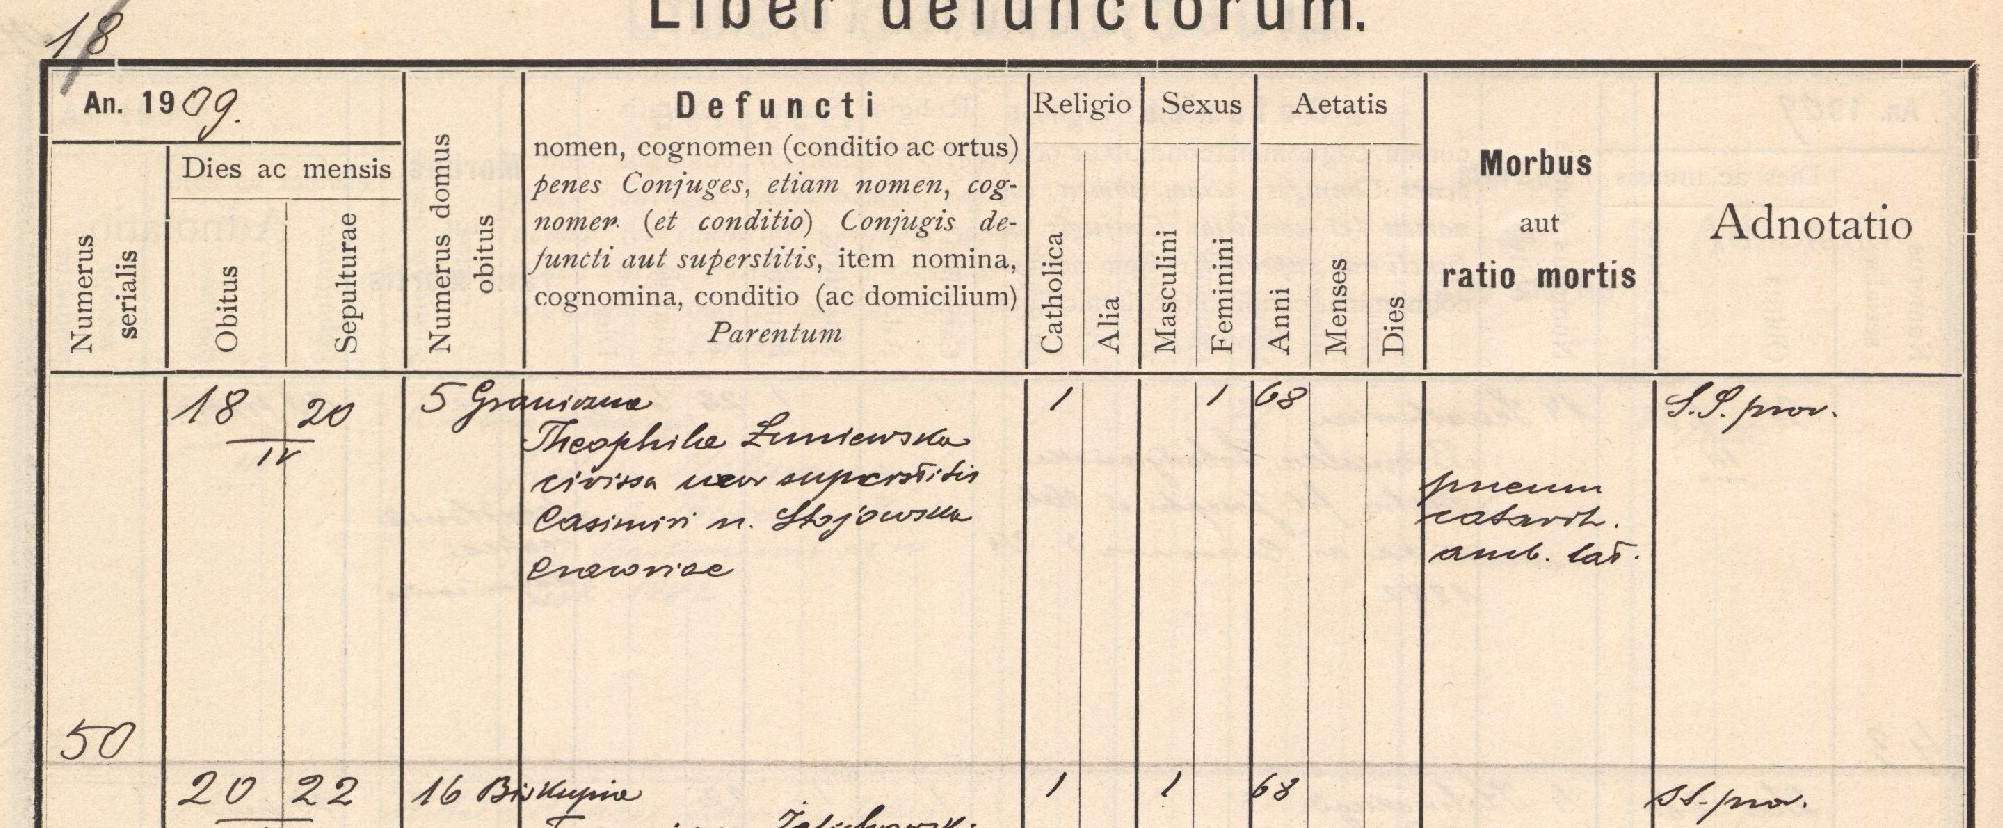 Liber defunctorum.
18
An. 1909.
Dies ac mensis
Numerus serialis
Obitus
Sepulturae
Numerus domus obitus
Defuncti
nomen, cognomen (conditio ac ortus)
penes Conjuges, etiam nomen, cog-
nomen (et conditio) Conjugis de-
functi aut superstitis, item nomina,
cognomina, conditio (ac domicilium)
Parentum
Religio
Catholica
Alia
Sexus
Masculini
Feminini
Aetatis
Anni
Menses
Dies
Morbus
aut
ratio mortis
Adnotatio
18 20 5 Graniczna 1 1 68 S.S. prov.
IV
Theophila Łuniewska
civissa uxor superstitis
Casimiri n. Stojowska
Cracoviae
pneum
catarrh.
amb. lat.
50
20 22 16 Biskupia 1 1 68 SS. prov.